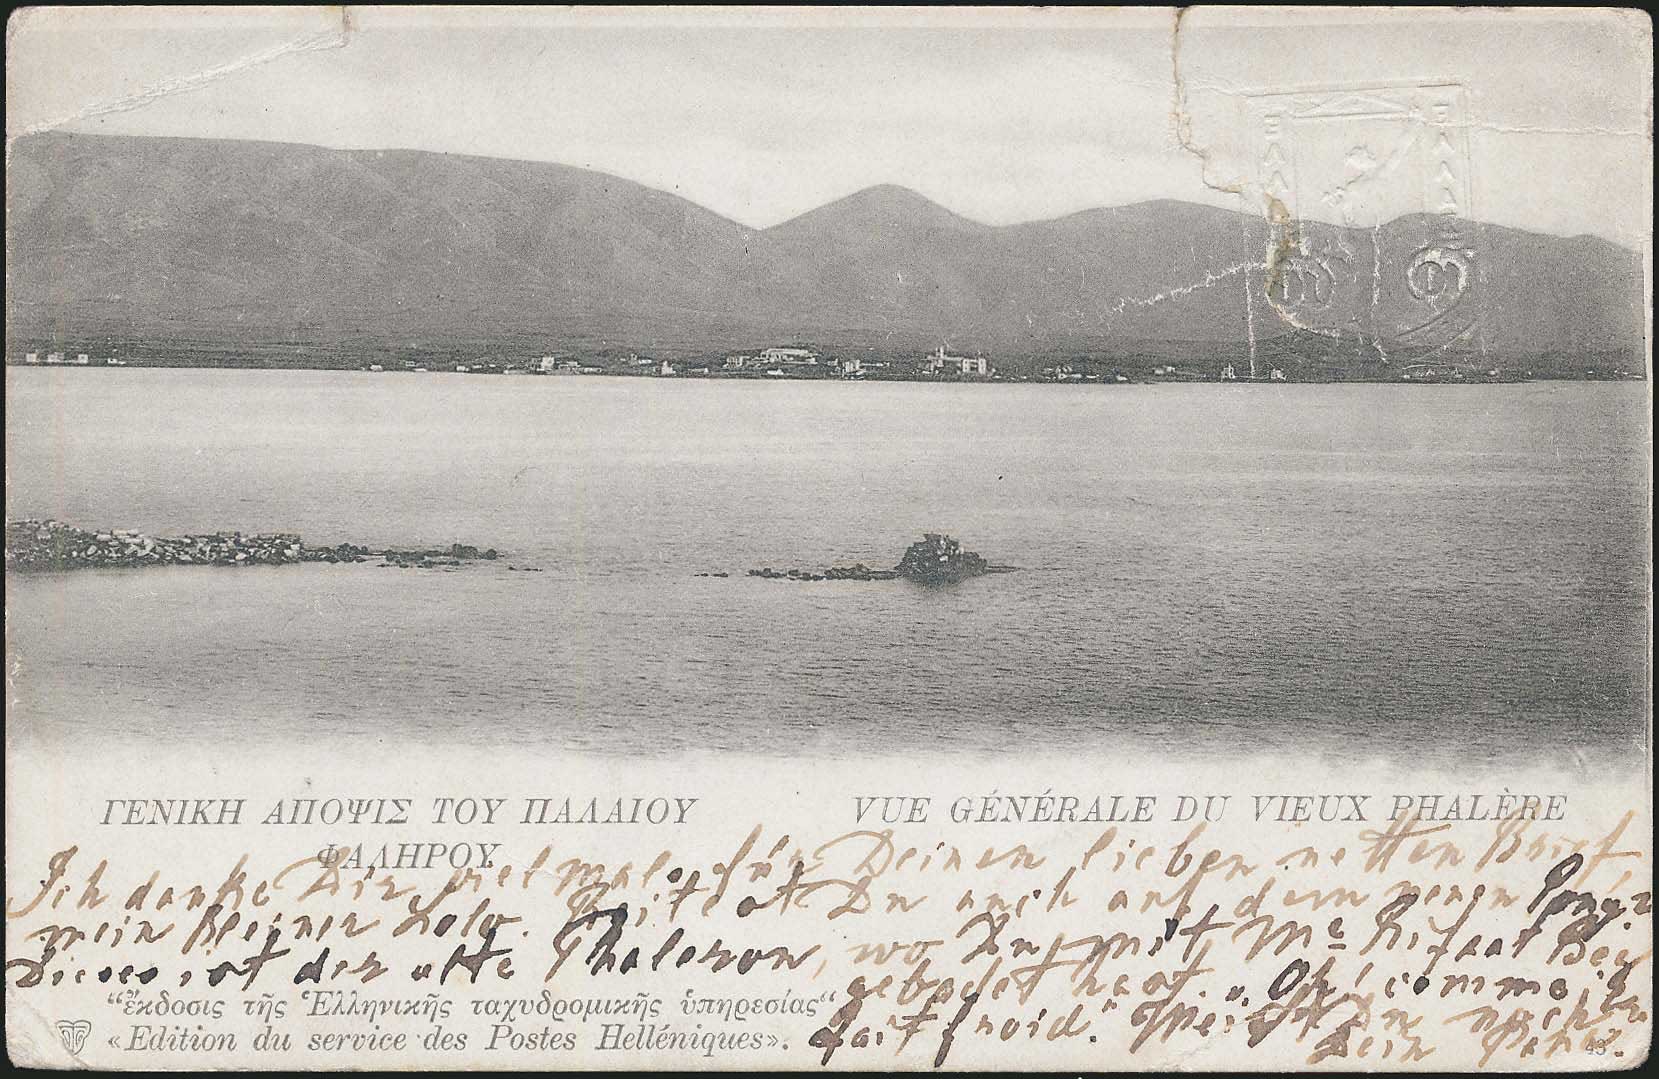 ΕΛΛΑΣ
ΕΛΛΑΣ
ΓΕΝΙΚΗ ΑΠΟΨΙΣ ΤΟΥ ΠΑΛΑΙΟΥ
ΦΑΛΗΡΟΥ
VUE GÉNÉRALE DU VIEUX PHALÈRE
Ich danke Dir vielmals für Deinen lieben netten Brief,
mein kleiner Lolo. Reitest Du auch auf dem neuen Pony?
Dieses ist der alte Phaleron, wo Du mit Me Rifaat Bey
gebadet hast. „Oh! comme il
fait froid." Weißt Du noch?
Dein
"ἔκδοσις τῆς Ἑλληνικῆς ταχυδρομικῆς ὑπηρεσίας"
«Edition du service des Postes Helléniques».
45